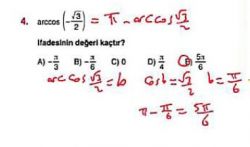 4. arccos(-√3/2) = π - arccos √3/2
ifadesinin değeri kaçtır?
A) -π/3 B) -π/6 C) 0 D) π/4 E) 5π/6
arccos √3/2 = b cosb = √3/2 b = π/6
π - π/6 = 5π/6